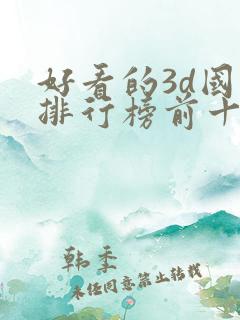 好看的3d国
排行榜前十
韩季
未经同意禁止转载